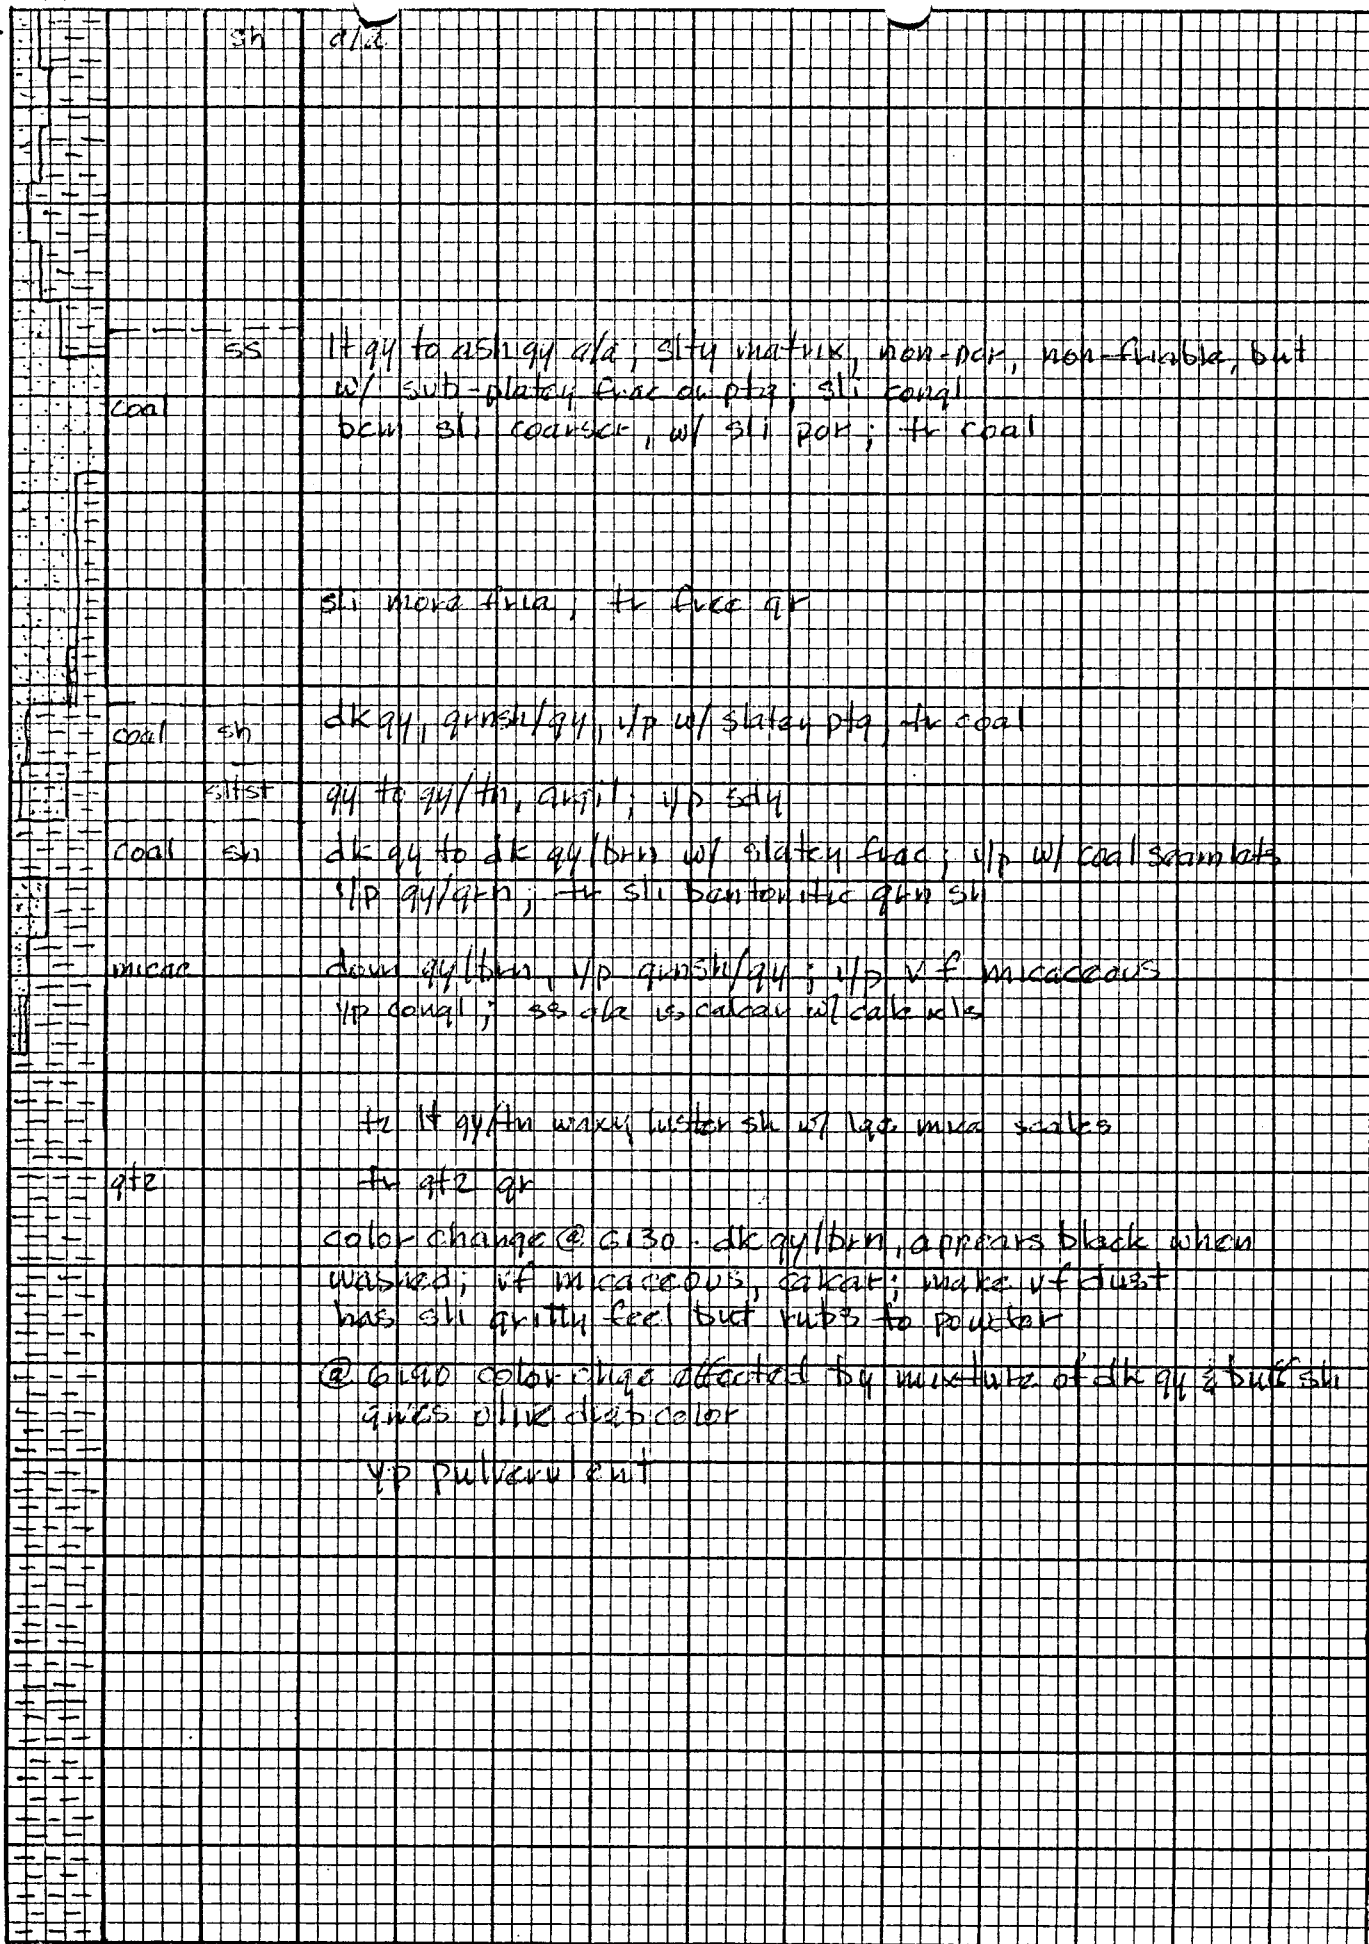 sh a/a
ss lt gy to ash gy a/a; slty matrix, non-por, non-friable, but
w/ sub-platey frac or ptg; sli congl
coal
bcm sli coarser, w/ sli por; tr coal
sli more fria; tr free gr
coal sh dk gy, grnsh/gy, i/p w/ slatey ptg, tr coal
sltst gy to gy/tn, argil; i/p sdy
coal sh dk gy to dk gy/brn w/ slatey frac; i/p w/ coal seamlets
i/p gy/grn; tr sli bentonitic grn sh
micac gy/brn, i/p grnsh/gy; i/p v f micaceous
i/p congl; ss a/a is calcar w/ calc xls
tr lt gy/tn waxy luster sh w/ lge mica scales
qtz tr qtz gr
color change @ 6130 - dk gy/brn, appears black when
washed; vf micaceous, calcar; make vf dust
has sli gritty feel but rubs to powder
@ 6190 color chge affected by mixture of dk gy & buff sh
gives olive drab color
i/p pulverulent